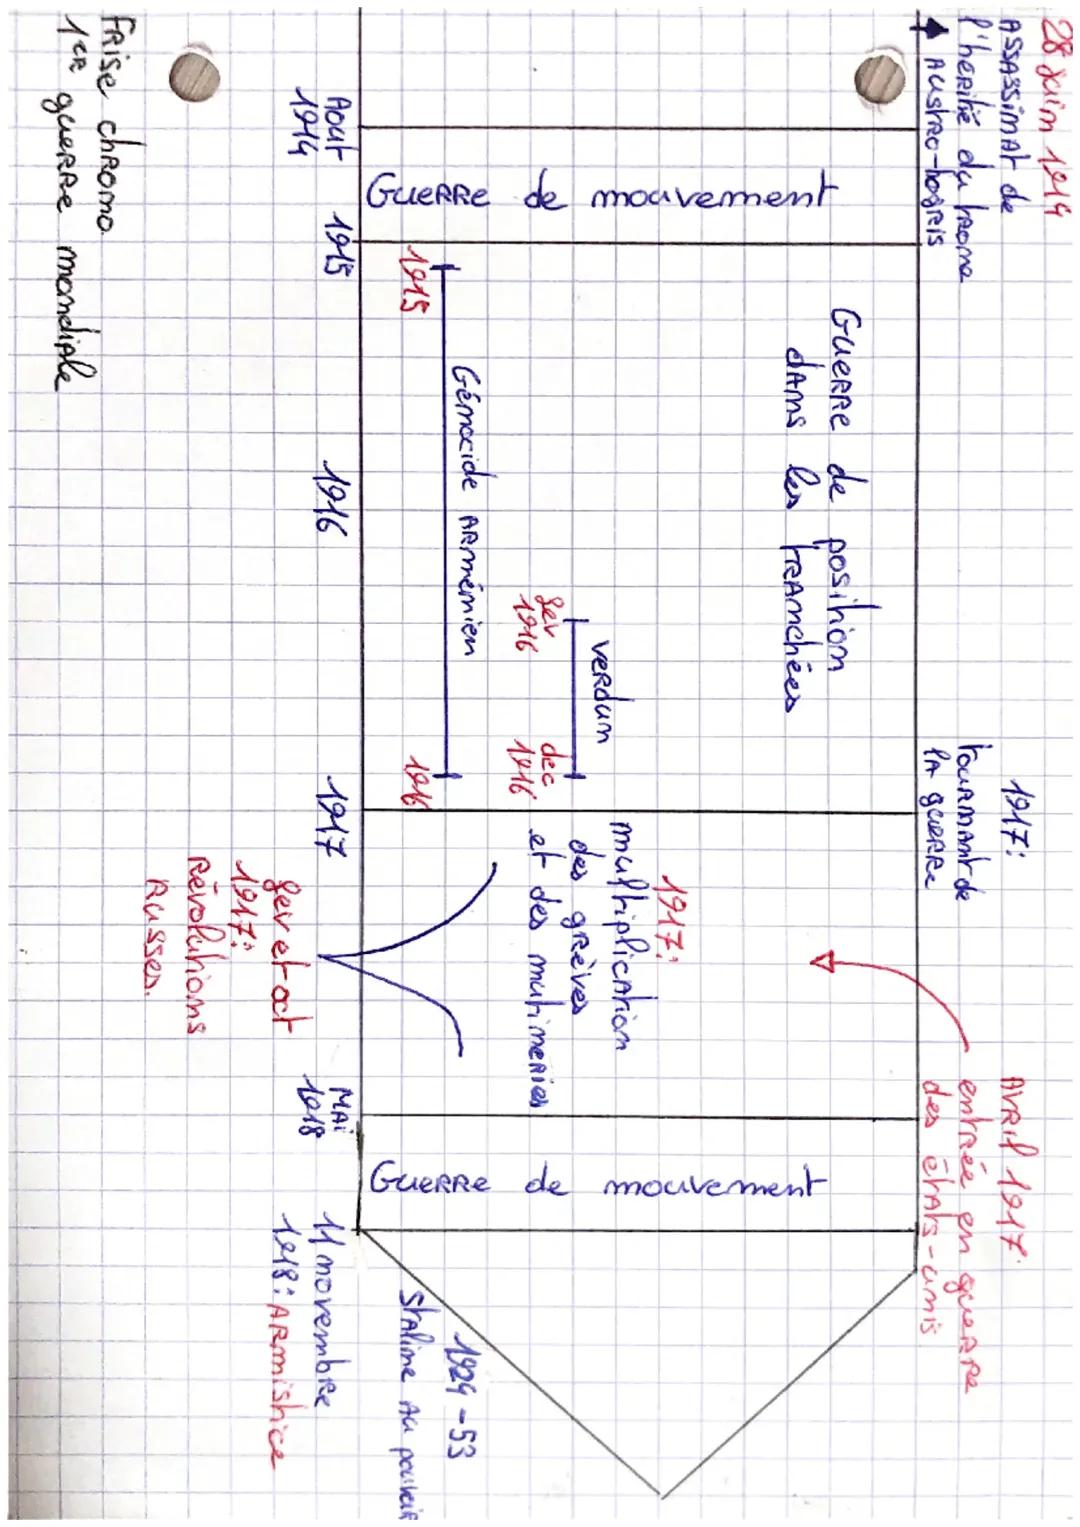 28 Juin 1914
Assassinat de
l'héritié du trone
Austro-hogris
1917:
tournant de
la guerre
Avril 1917.
entrée en guerre
des états-unis
Guerre de mouvement
Guerre de position
dans les tranchées
verdun
fev
1916
dec
1916
Génocide Arménien
1915
1916
1917:
multiplication
des grèves
et des mutineries
Guerre de mouvement
1924-53
Staline au pouvoir
Aout
1914
1915
1916
1917
Mai
1918
11 novembre
1918: Armistice
fev et oct
1917:
Révolutions
Russes.
Frise chrono
1ER guerre mondiale